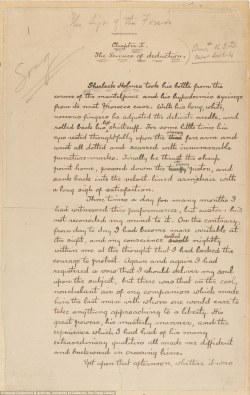 The Sign of the Four
Chapter I.
The Science of deduction.
Sherlock Holmes took his bottle from the
corner of the mantelpiece and his hypodermic syringe
from its neat Morocco case. With his long, white,
nervous fingers he adjusted the delicate needle, and
rolled back his shirtcuff. For some little time his
eyes rested thoughtfully upon the forearm and
wrist all dotted and scarred with innumerable
puncture-marks. Finally he thrust the sharp
point home, pressed down the piston, and
sank back into the velvet lined armchair with
a long sigh of satisfaction.
Three times a day for many months I
had witnessed this performance, but custom had
not reconciled my mind to it. On the contrary,
from day to day I had become more irritable at
the sight, and my conscience swelled nightly
within me at the thought that I had lacked the
courage to protest. Again and again I had
registered a vow that I should deliver my soul
upon the subject, but there was that in the cool,
nonchalant air of my companion which made
him the last man with whom one would care to
take anything approaching to a liberty. His
great powers, his masterly manner, and the
experience which I had had of his many
extraordinary qualities all made me diffident
and backward in crossing him.
Yet upon that afternoon, whether it was